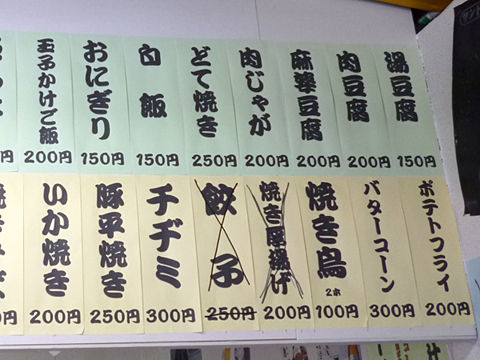 湯豆腐
150円
肉豆腐
200円
麻婆豆腐
200円
肉じゃが
200円
どて焼き
250円
白飯
150円
おにぎり
150円
玉子かけご飯
200円
ポテトフライ
200円
バターコーン
300円
焼き鳥
2本
100円
焼き厚揚げ
200円
餃子
250円
チヂミ
300円
豚平焼き
250円
いか焼き
200円